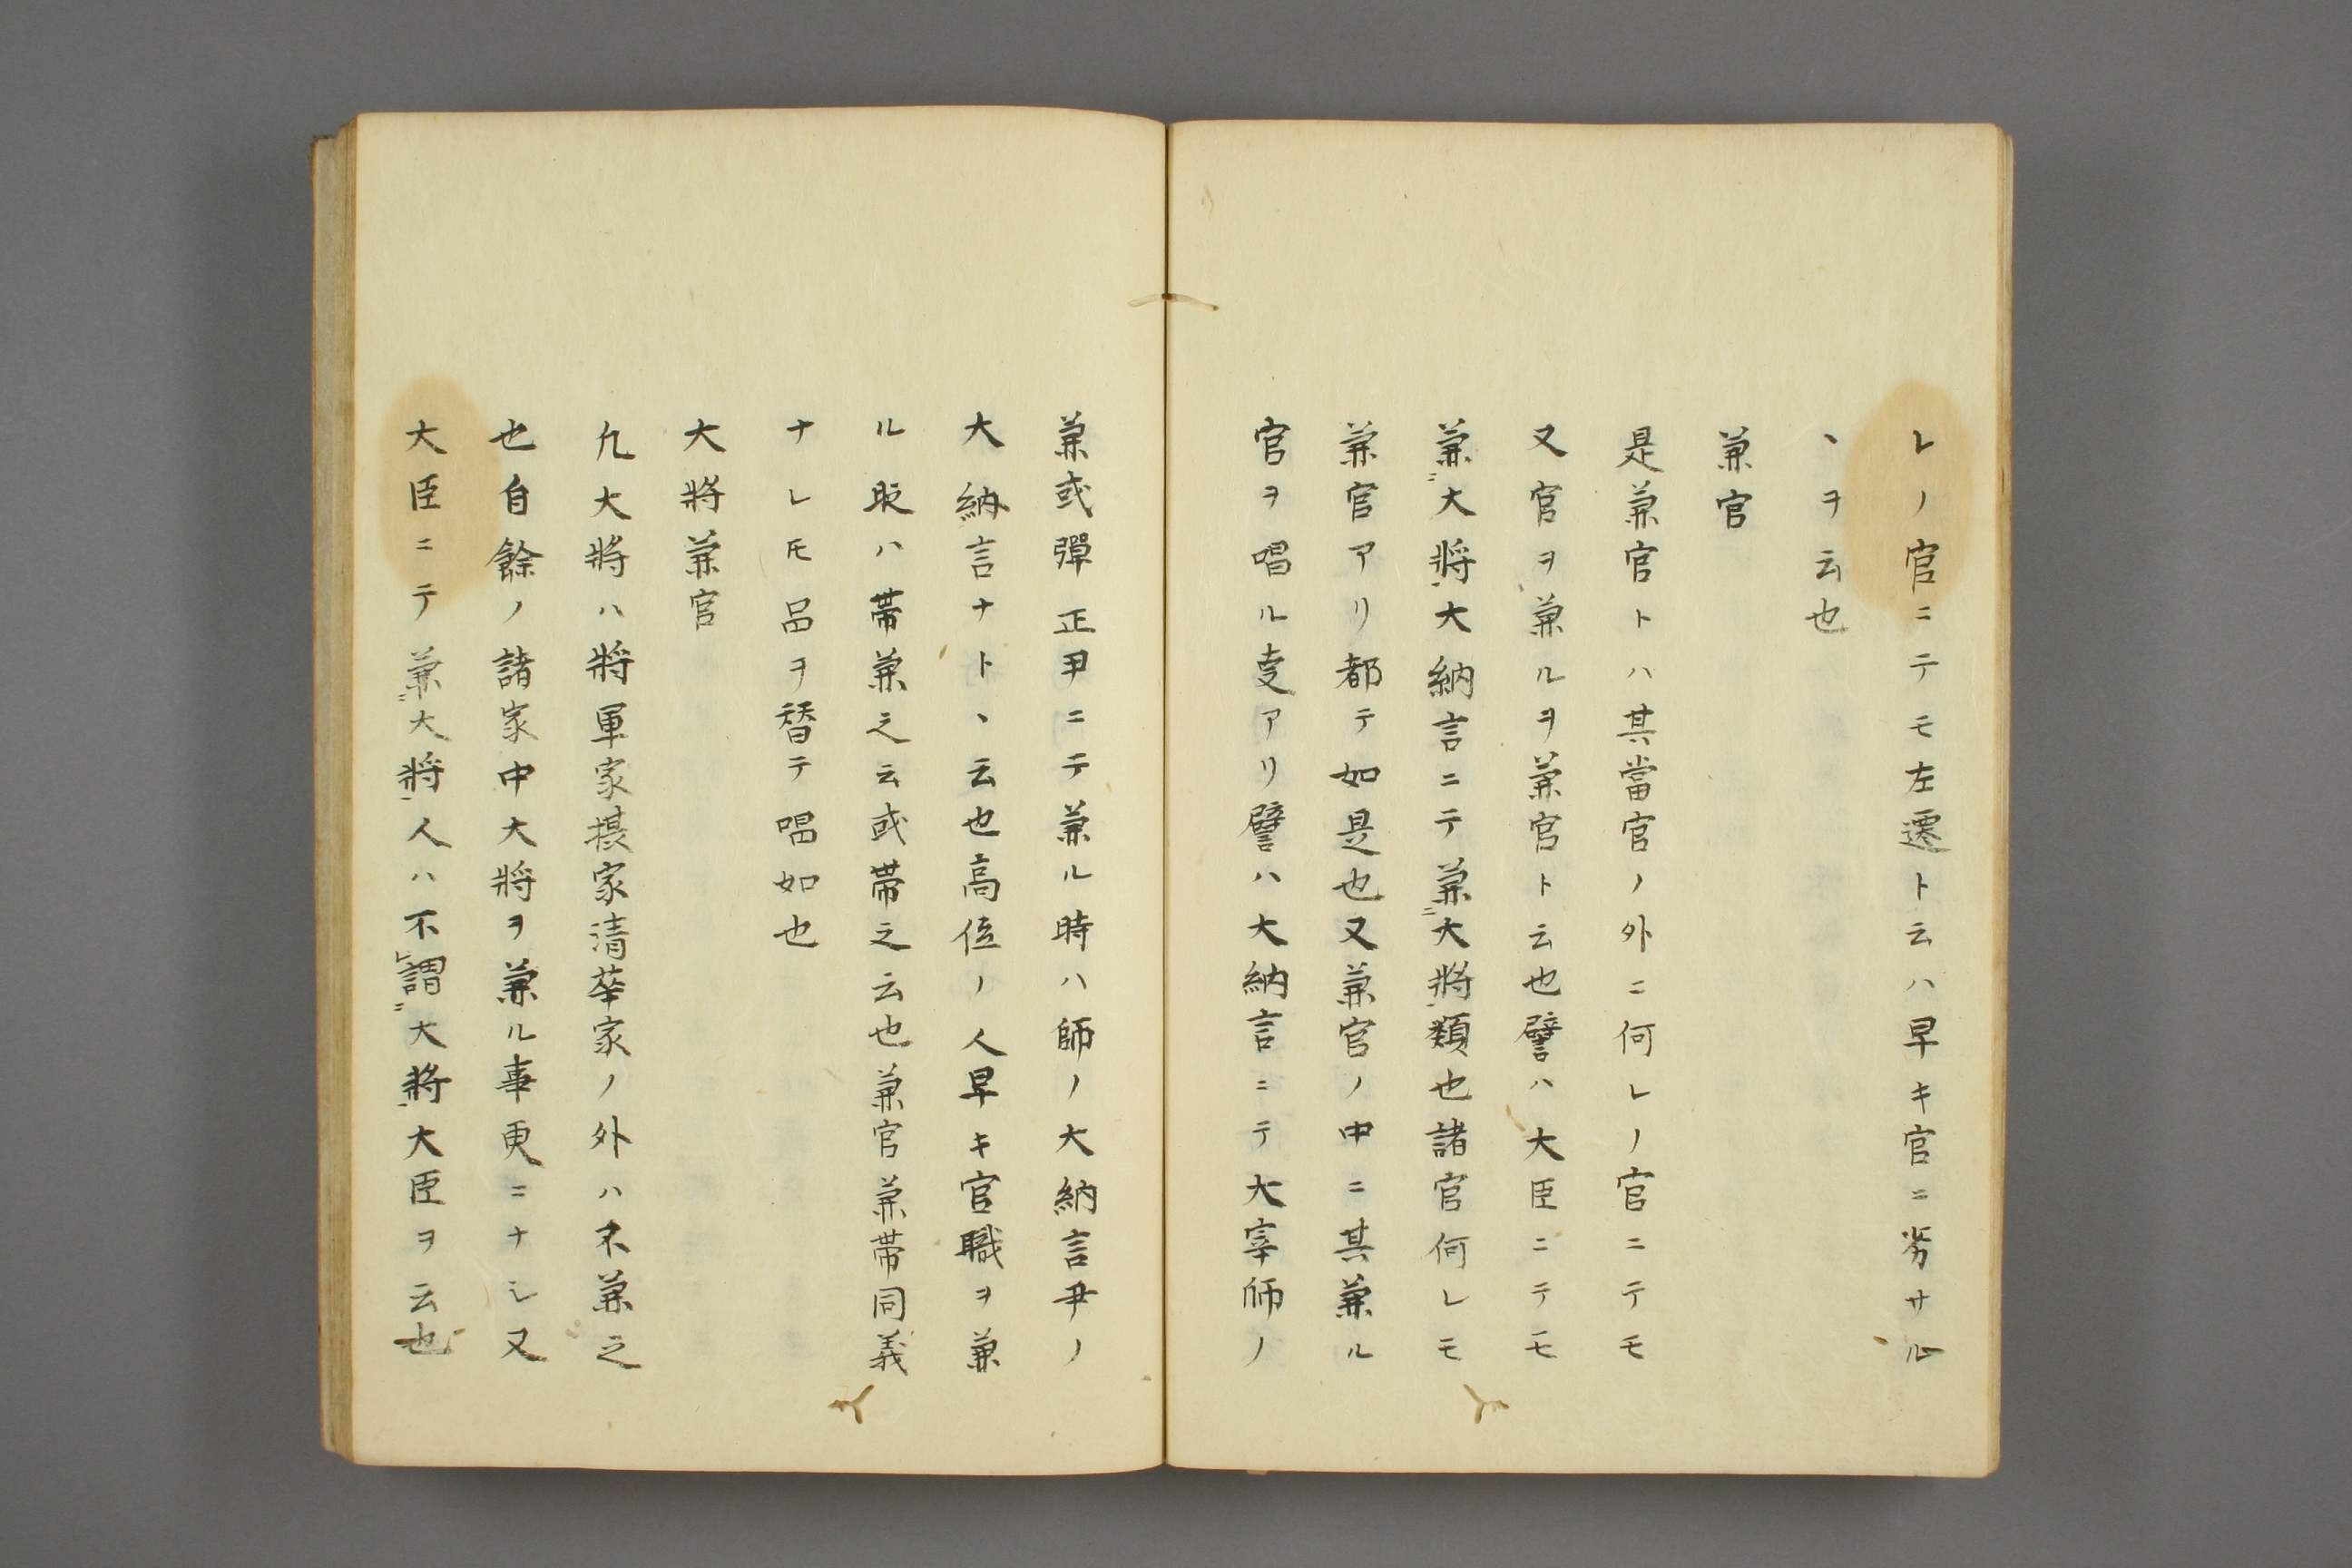 レノ官ニテモ左遷ト云ハ早キ官ニ劣サル
ヽヲ云也
兼官
是兼官トハ其當官ノ外ニ何レノ官ニテモ
又官ヲ兼ルヲ兼官ト云也譬ハ大臣ニテモ
兼ニ大將一大納言ニテ兼ニ大將一類也諸官何レモ
兼官アリ都テ如是也又兼官ノ中ニ其兼ル
官ヲ唱ル叓アリ譬ハ大納言ニテ大宰師ノ
兼或彈正尹ニテ兼ル時ハ師ノ大納言尹ノ
大納言ナトヽ云也高位ノ人早キ官職ヲ兼
ル取ハ帯兼之云或帯之云也兼官兼帯同義
ナレ𪜈品ヲ替テ唱如也
大將兼官
凢大將ハ將軍家摂家清華家ノ外ハ不兼之
也自餘ノ諸家中大將ヲ兼ル事更ニナシ又
大臣ニテ兼ニ大將一人ハ不レ謂ニ大將一大臣ヲ云也